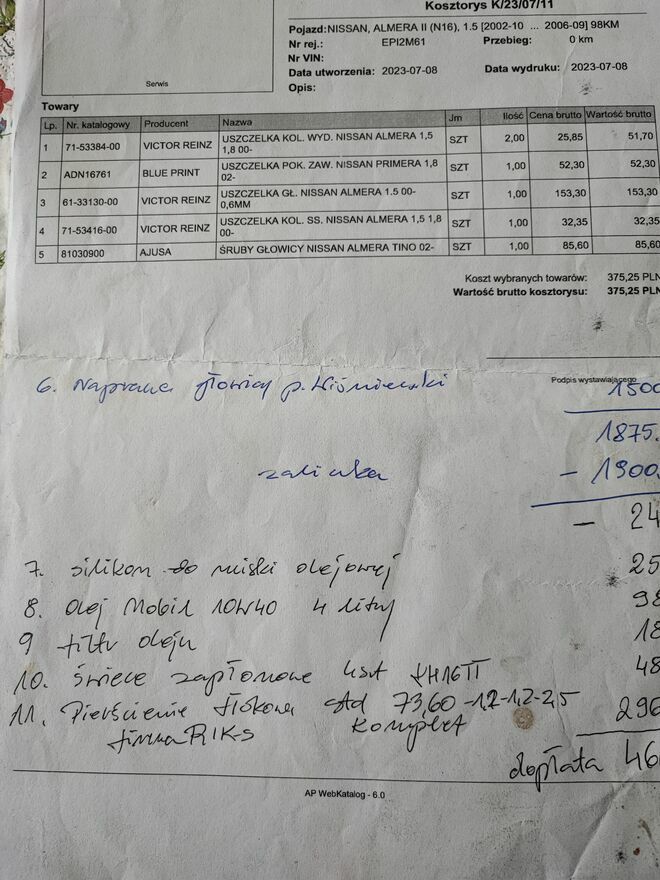 Kosztorys K/23/07/11
Pojazd: NISSAN, ALMERA II (N16), 1.5 [2002-10 ... 2006-09] 98KM
Nr rej.: EPI2M61 Przebieg: 0 km
Nr VIN:
Data utworzenia: 2023-07-08 Data wydruku: 2023-07-08
Opis:
Serwis
Towary
Lp. Nr. katalogowy Producent Nazwa Jm Ilość Cena brutto Wartość brutto
1 71-53384-00 VICTOR REINZ USZCZELKA KOL. WYD. NISSAN ALMERA 1,5 1,8 00- SZT 2,00 25,85 51,70
2 ADN16761 BLUE PRINT USZCZELKA POK. ZAW. NISSAN PRIMERA 1,8 02- SZT 1,00 52,30 52,30
3 61-33130-00 VICTOR REINZ USZCZELKA GŁ. NISSAN ALMERA 1.5 00- 0,6MM SZT 1,00 153,30 153,30
4 71-53416-00 VICTOR REINZ USZCZELKA KOL. SS. NISSAN ALMERA 1,5 1,8 00- SZT 1,00 32,35 32,35
5 81030900 AJUSA ŚRUBY GŁOWICY NISSAN ALMERA TINO 02- SZT 1,00 85,60 85,60
Koszt wybranych towarów: 375,25 PLN
Wartość brutto kosztorysu: 375,25 PLN
Podpis wystawiającego
6. Naprawa głowicy p. Wiśniewski 1500
1875.
zaliczka - 1900,
- 24
7. silikon do miski olejowej 25
8. olej Mobil 10W40 4 litry 98
9 filtr oleju 18
10. świece zapłonowe 4szt 48
11. Pierścienie tłokowe std 73,60 -1,2-1,2-2,5 296
firma RIKs komplet
dopłata 46
AP WebKatalog - 6.0